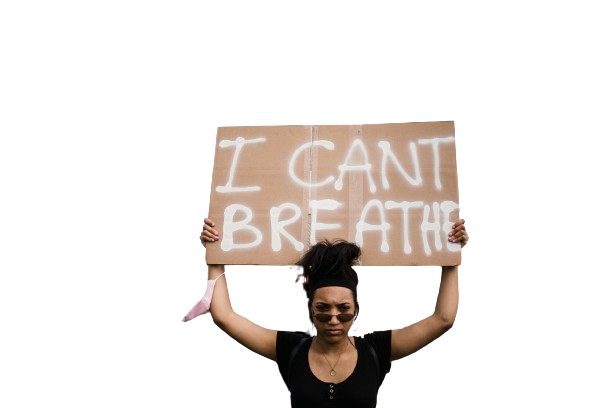 I CANT
BREATHE